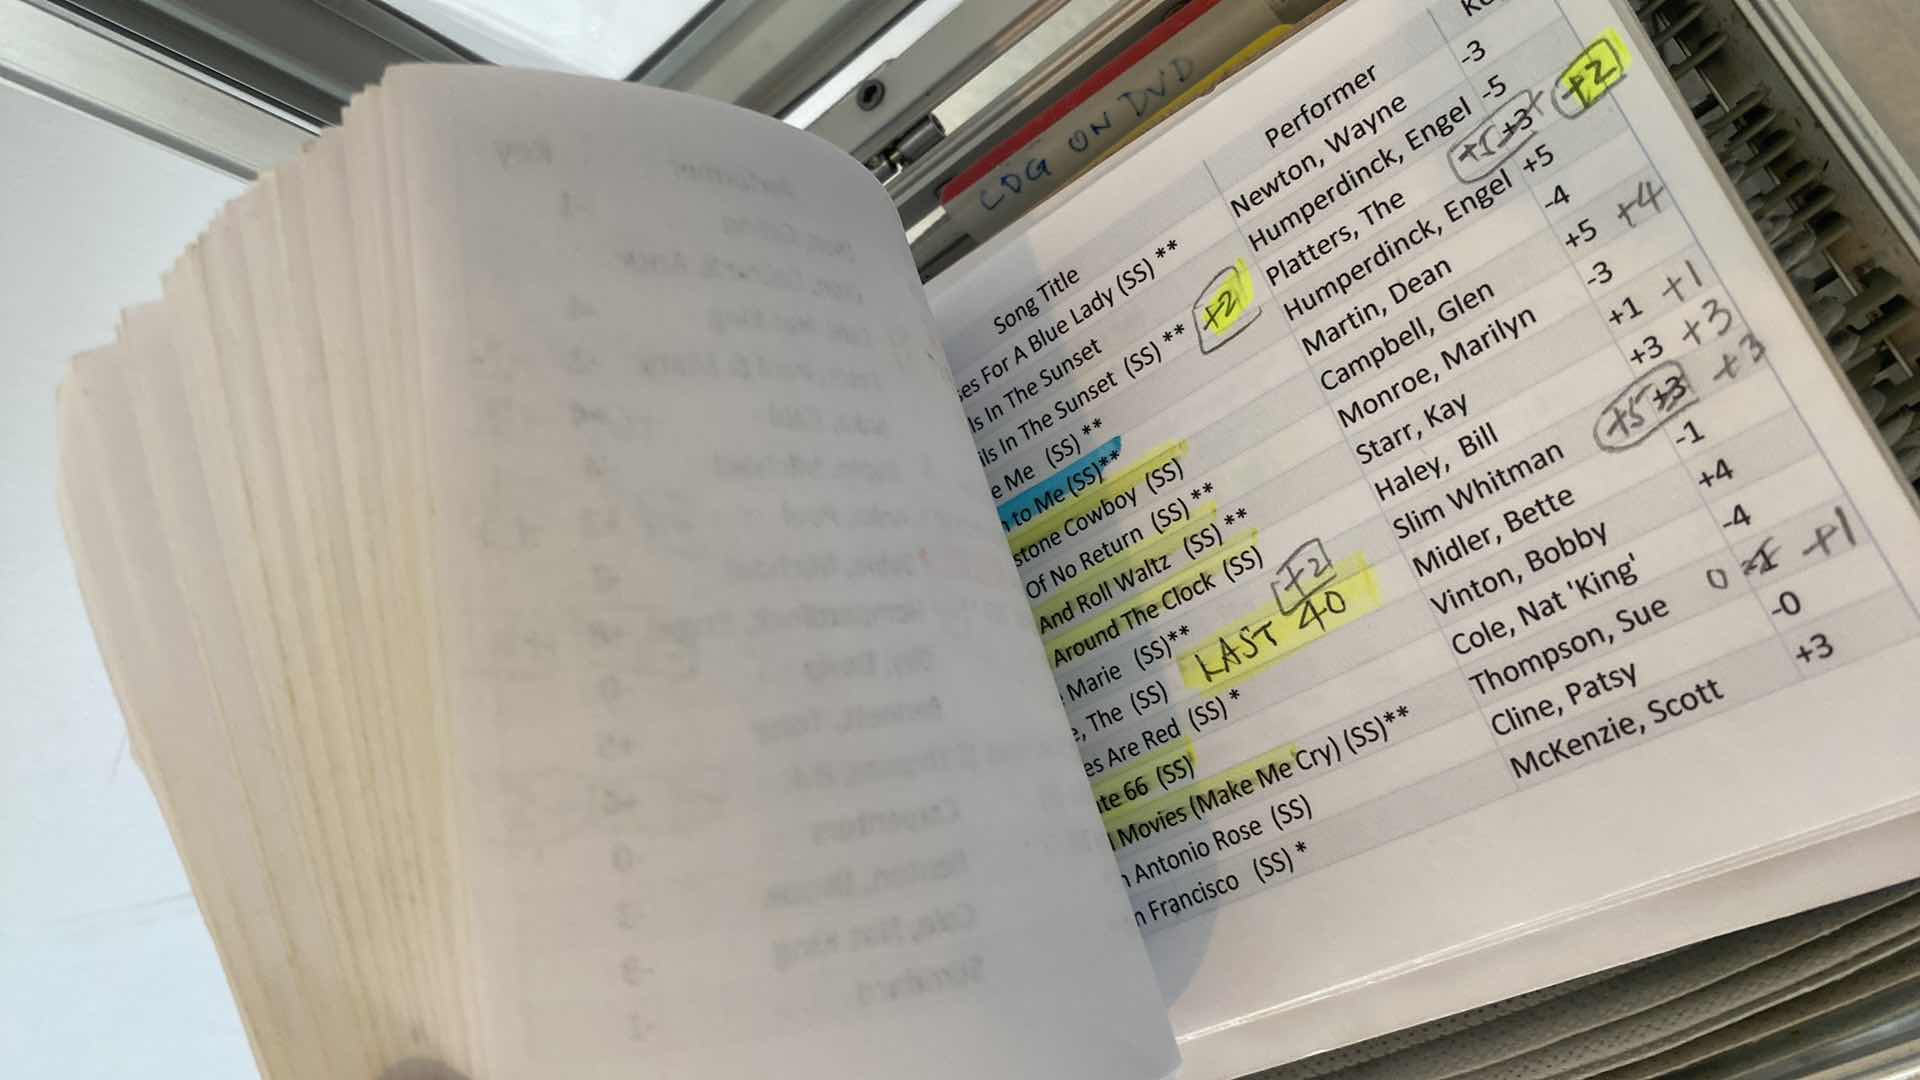 CDG ON DVD
Song Title Performer
ses For A Blue Lady (SS) ** Newton, Wayne -3
ls In The Sunset Humperdinck, Engel -5
ils In The Sunset (SS) ** +2 Platters, The +3 +2
e Me (SS) ** Humperdinck, Engel +5
to Me (SS)** Martin, Dean -4
stone Cowboy (SS) Campbell, Glen +5 +4
Of No Return (SS) ** Monroe, Marilyn -3
And Roll Waltz (SS) ** Starr, Kay +1 +1
Around The Clock (SS) +2 Haley, Bill +3 +3
Marie (SS)** LAST 40 Slim Whitman +5 +3 +3
e, The (SS) Midler, Bette -1
es Are Red (SS) * Vinton, Bobby +4
ute 66 (SS) Cole, Nat 'King' -4
Movies (Make Me Cry) (SS)** Thompson, Sue 0 +1
Antonio Rose (SS) Cline, Patsy -0
n Francisco (SS) * McKenzie, Scott +3